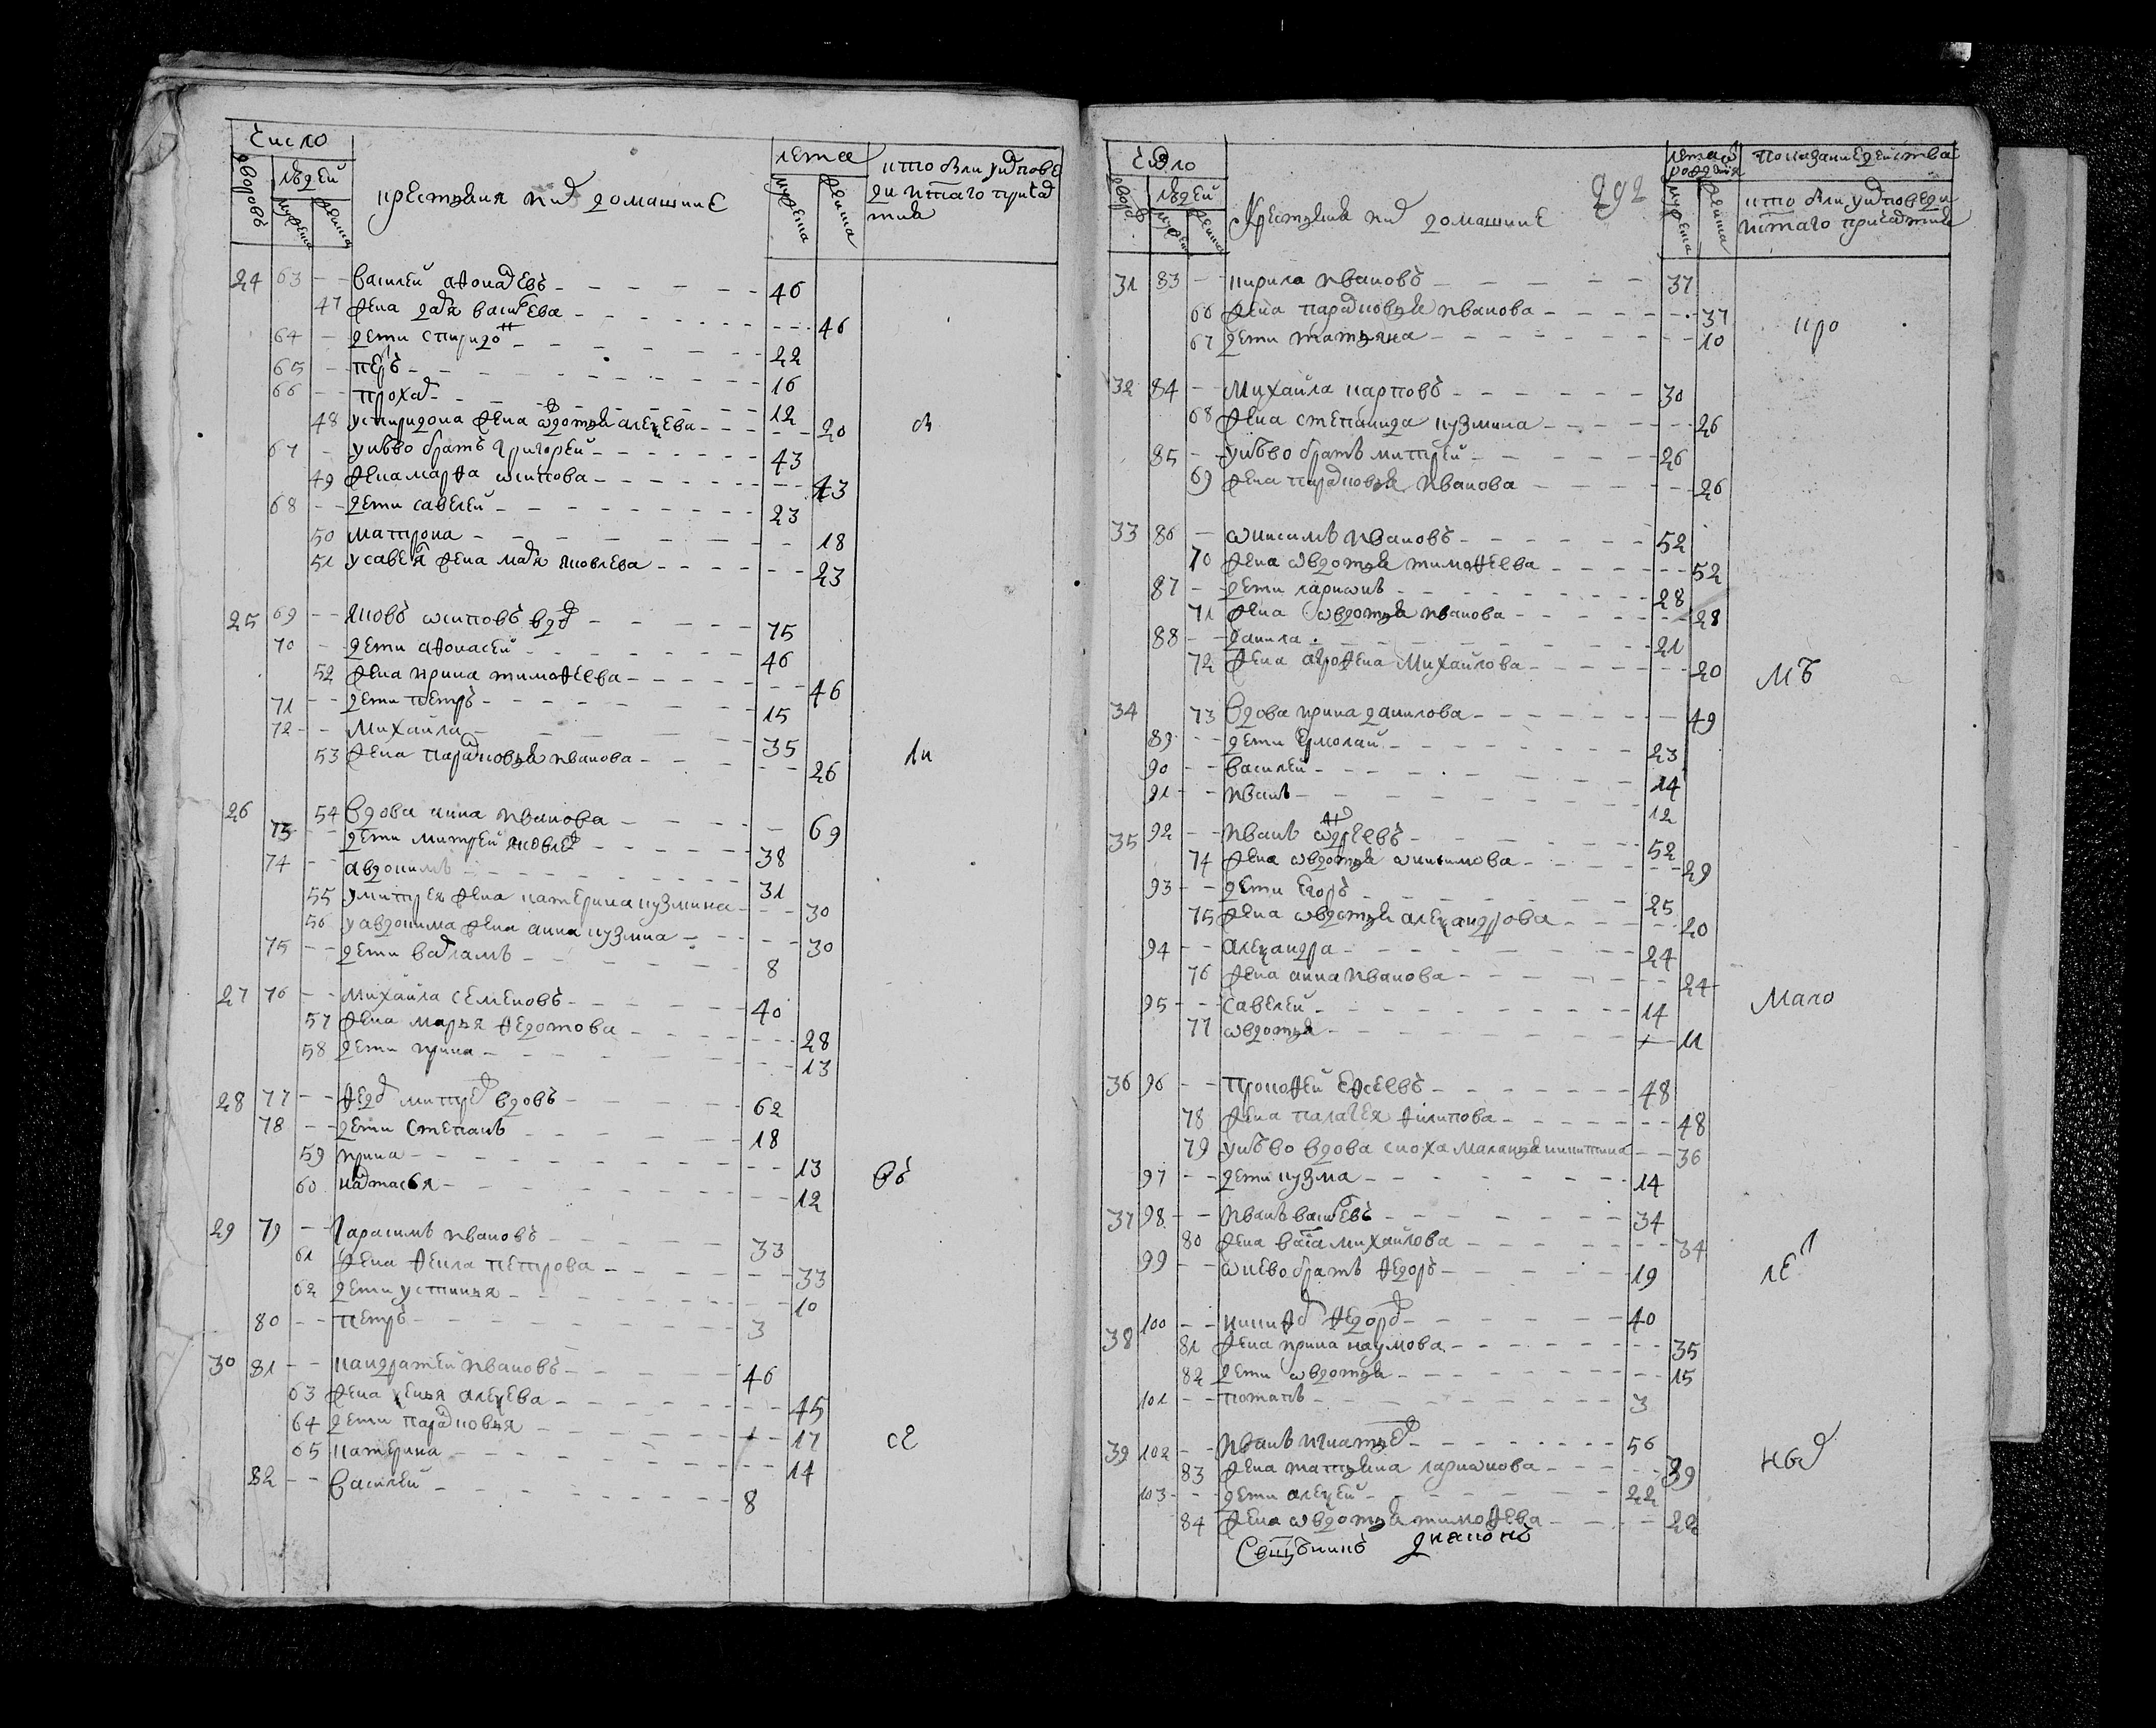 Число
дворовъ
людей
мужска
женска
крестьяня их домашние
лета
мужска
женска
кто был у исповеди и с̃таго причастия
24 63 -- василей афонасьевъ 46
47 жена дарья васильева 46
64 дети спиридон 22
65 петръ 16
66 прохор 12
48 у спиридона жена овдотья алексеева 20 си
67 у нево братъ григорей 43
49 жена марфа осипова 43
68 дети савелей 23
50 матрона 18
51 у савелья жена марья яковлева 23
25 69 яковъ осиповъ вдов 75
70 дети афонасей 46
52 жена ирина тимофеева 46
71 дети петръ 15
72 михайла 35
53 жена парасковья иванова 26
26 54 вдова анна иванова 69
73 дети митрей яковлев 38
74 авдокимъ 31
55 у митрея жена катерина кузмина 30
56 у авдокима жена анна кузмина 30
75 дети варламъ 8
27 76 михайла семеновъ 40
57 жена марья федотова 28
58 дети ирина 13
28 77 федор митрев вдовъ 62
78 дети степанъ 18
59 ирина 13
60 настасья 12
29 79 гарасимъ ивановъ 33
61 жена фекла петрова 33
62 дети устинья 10
80 петръ 3
30 81 кандратей ивановъ 46
63 жена ксенья алексеева 45
64 дети парасковья 17
65 катерина 14
82 василей 8
Число
людей
мужска
женска
Крестьяня их домашние
292
лета от рождения
мужска
женска
показание действа
кто был у исповеди и с̃таго причастия
31 83 кирила ивановъ 37
66 жена парасковья иванова 37 про
67 дети татьяна 10
32 84 михайла карповъ 30
68 жена степанида кузмина 26
85 у нево братъ митрей 26
69 жена парасковья иванова 26
33 86 онисимъ ивановъ 52
70 жена овдотья тимофеева 52
87 дети ларионъ 28
71 жена овдотья иванова 28
88 данила 21
72 жена афрофена михайлова 20
34 73 вдова ирина данилова 49
89 дети ермолай 23
90 василей 14
91 иванъ 12
35 92 иванъ ондреевъ 52
74 жена овдотья онисимова 29
93 дети егоръ 25
75 жена овдотья александрова 20
94 александра 24
76 жена анна иванова 24
95 савелей 14 мало
77 овдотья 11
36 96 прокофей евсеевъ 48
78 жена палагея филипова 48
79 у нево вдова сноха маланья никитина 36
97 дети кузма 14
37 98 иванъ васильевъ 34
80 жена васса михайлова 34
99 у нево братъ федоръ 19 ле
38 100 никифор федоров 40
81 жена ирина наумова 35
82 дети овдотья 15
101 потапъ 3
39 102 иванъ игнатьев 56
83 жена татьяна ларионова 39
103 дети алексей 22
84 жена овдотья тимофеева 22
Священникъ